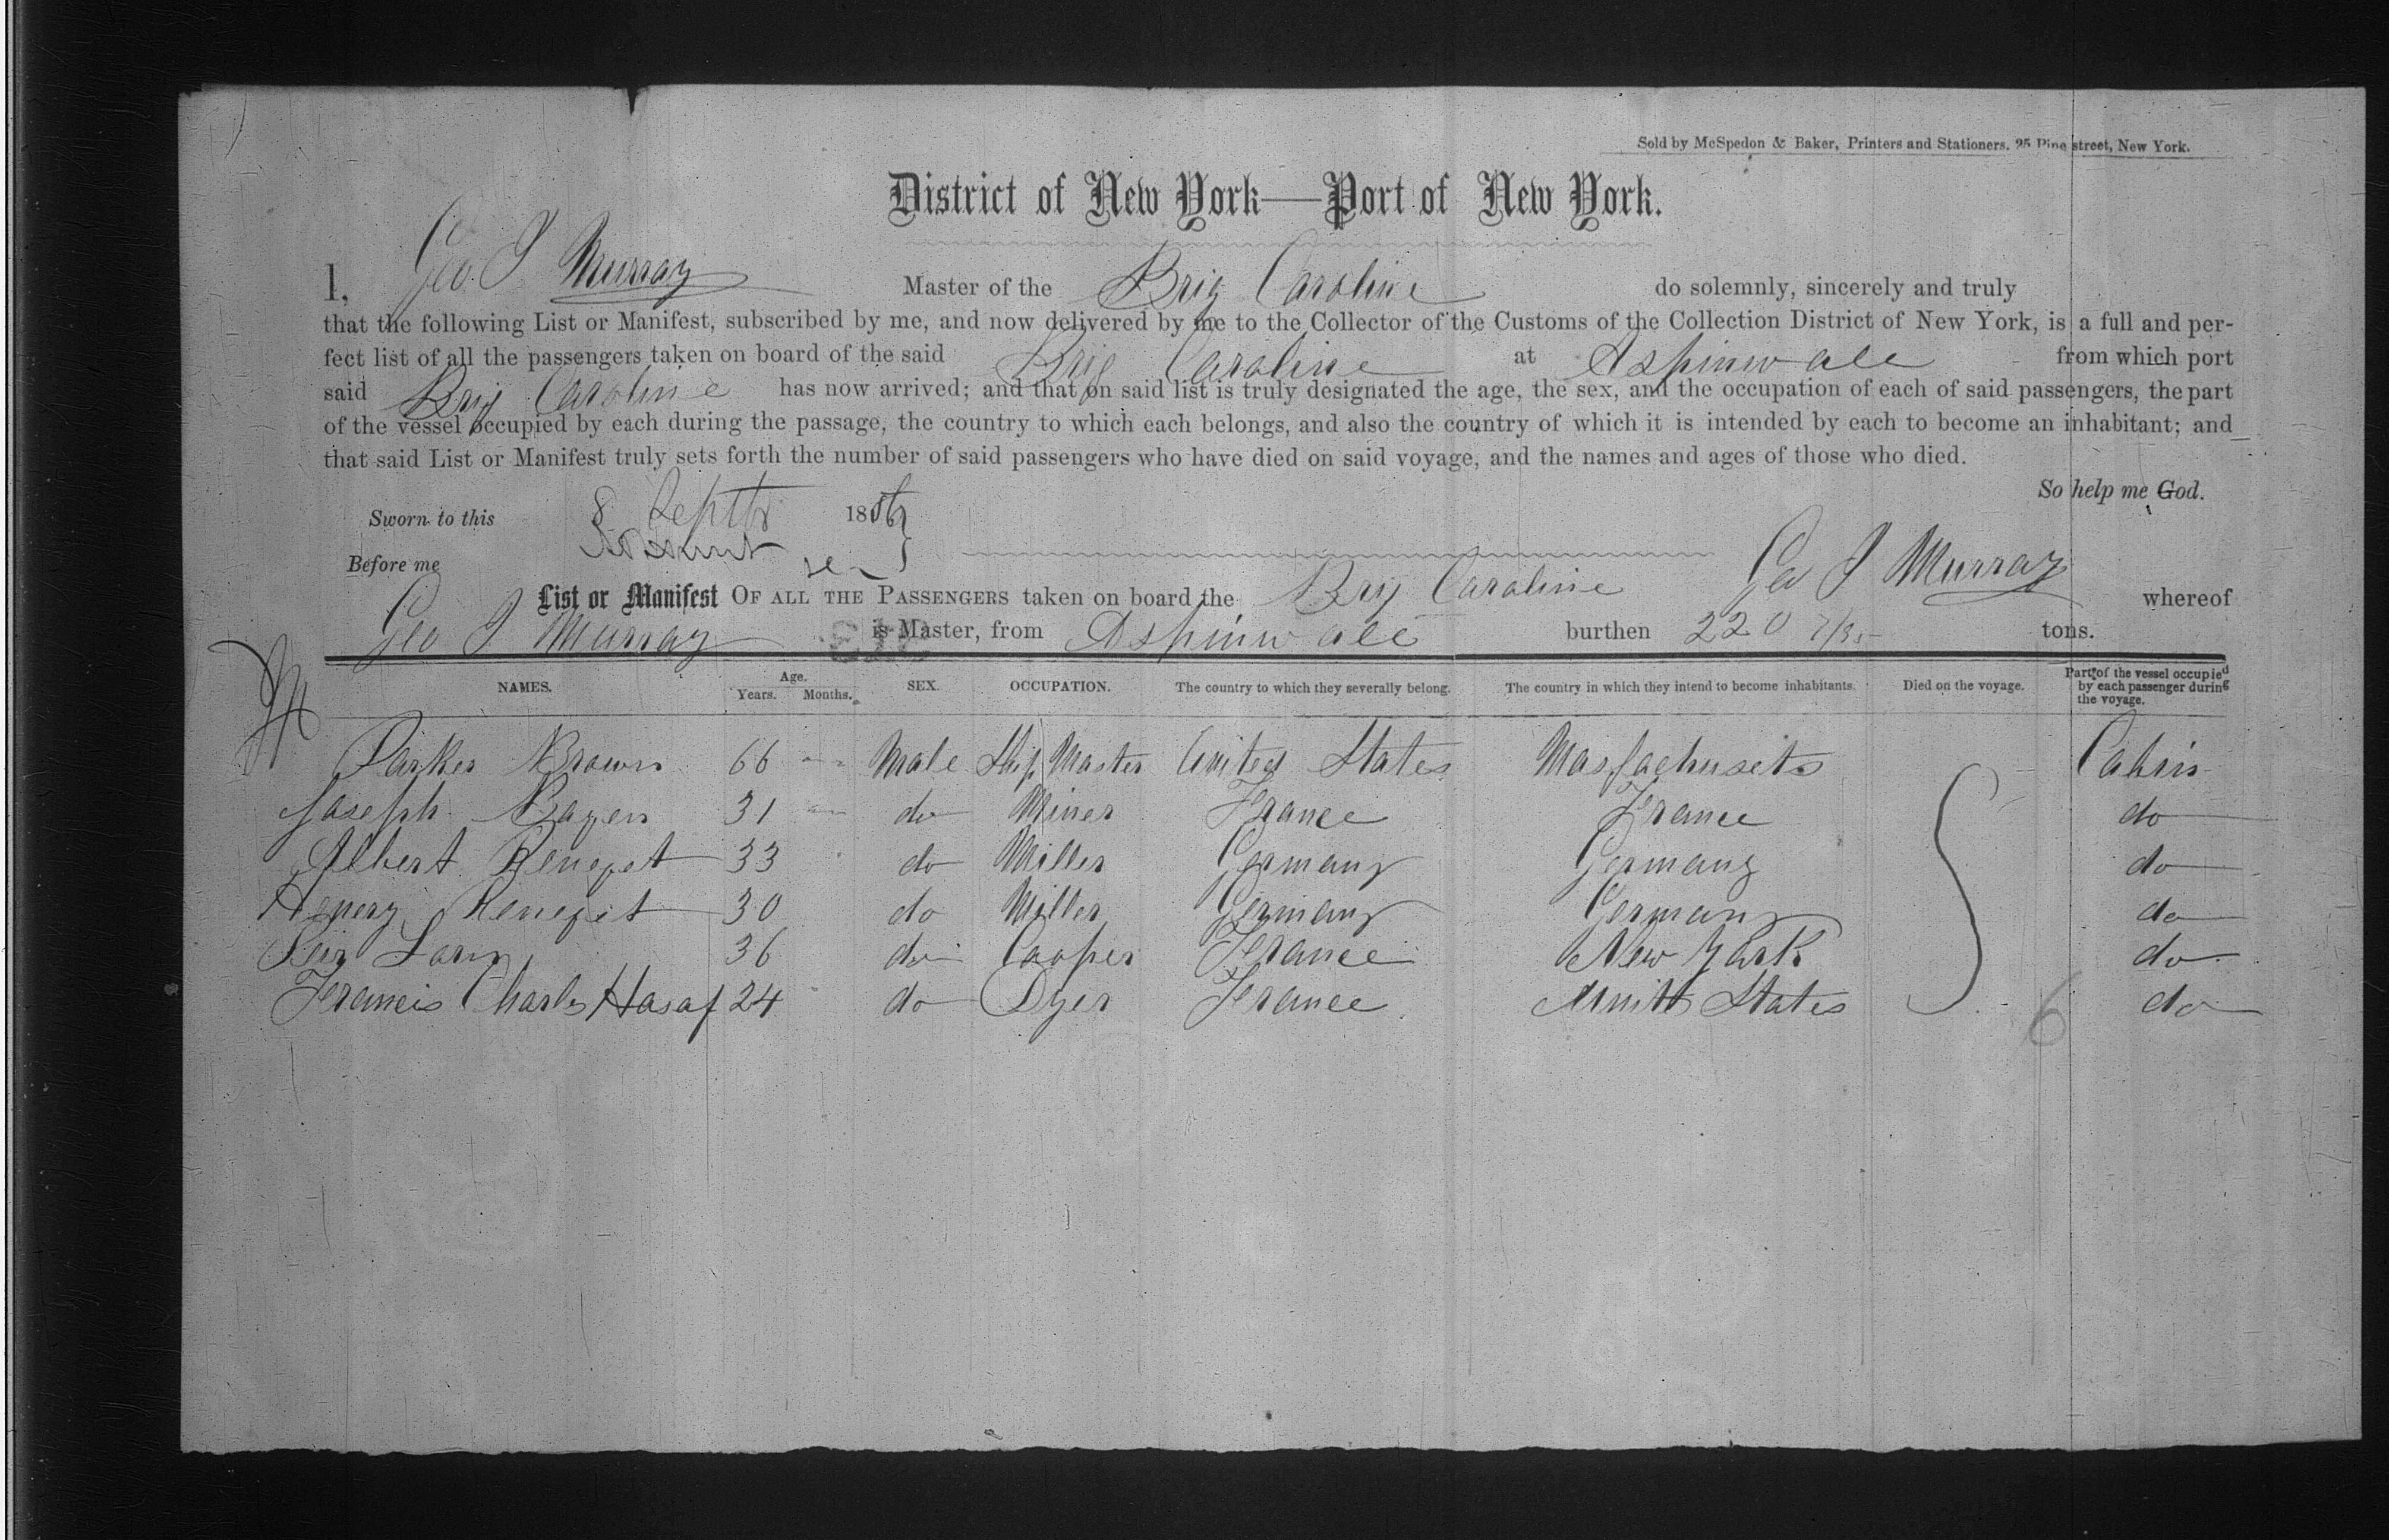 Sold by McSpedon & Baker, Printers and Stationers. 25 Pine street, New York.
District of New York—Port of New York.
I, Geo. J Murray Master of the Brig Caroline do solemnly, sincerely and truly
that the following List or Manifest, subscribed by me, and now delivered by me to the Collector of the Customs of the Collection District of New York, is a full and per-
fect list of all the passengers taken on board of the said Brig Caroline at Aspinwall from which port
said Brig Caroline has now arrived; and that on said list is truly designated the age, the sex, and the occupation of each of said passengers, the part
of the vessel occupied by each during the passage, the country to which each belongs, and also the country of which it is intended by each to become an inhabitant; and
that said List or Manifest truly sets forth the number of said passengers who have died on said voyage, and the names and ages of those who died.
So help me God.
Sworn to this 8 Septbr 1856
Before me
Geo J Murray
List or Manifest OF ALL THE PASSENGERS taken on board the Brig Caroline whereof
Geo J Murray is Master, from Aspinwall burthen 220 7/95 tons.
NAMES. Age. Years. Months. SEX. OCCUPATION. The country to which they severally belong. The country in which they intend to become inhabitants. Died on the voyage. Part of the vessel occupied by each passenger during the voyage.
Parker Brown 66 Male Ship Master United States Massachusets Cabin
Joseph Bayen 31 do Miner France France do
Albert 33 do Miller Germany Germany do
Henery 30 do Miller Germany Germany do
36 do Cooper France New York do
Francis Charles 24 do Dyer France States do
6